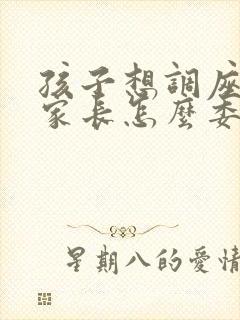 孩子想調座
家長怎麼委
星期八的愛情